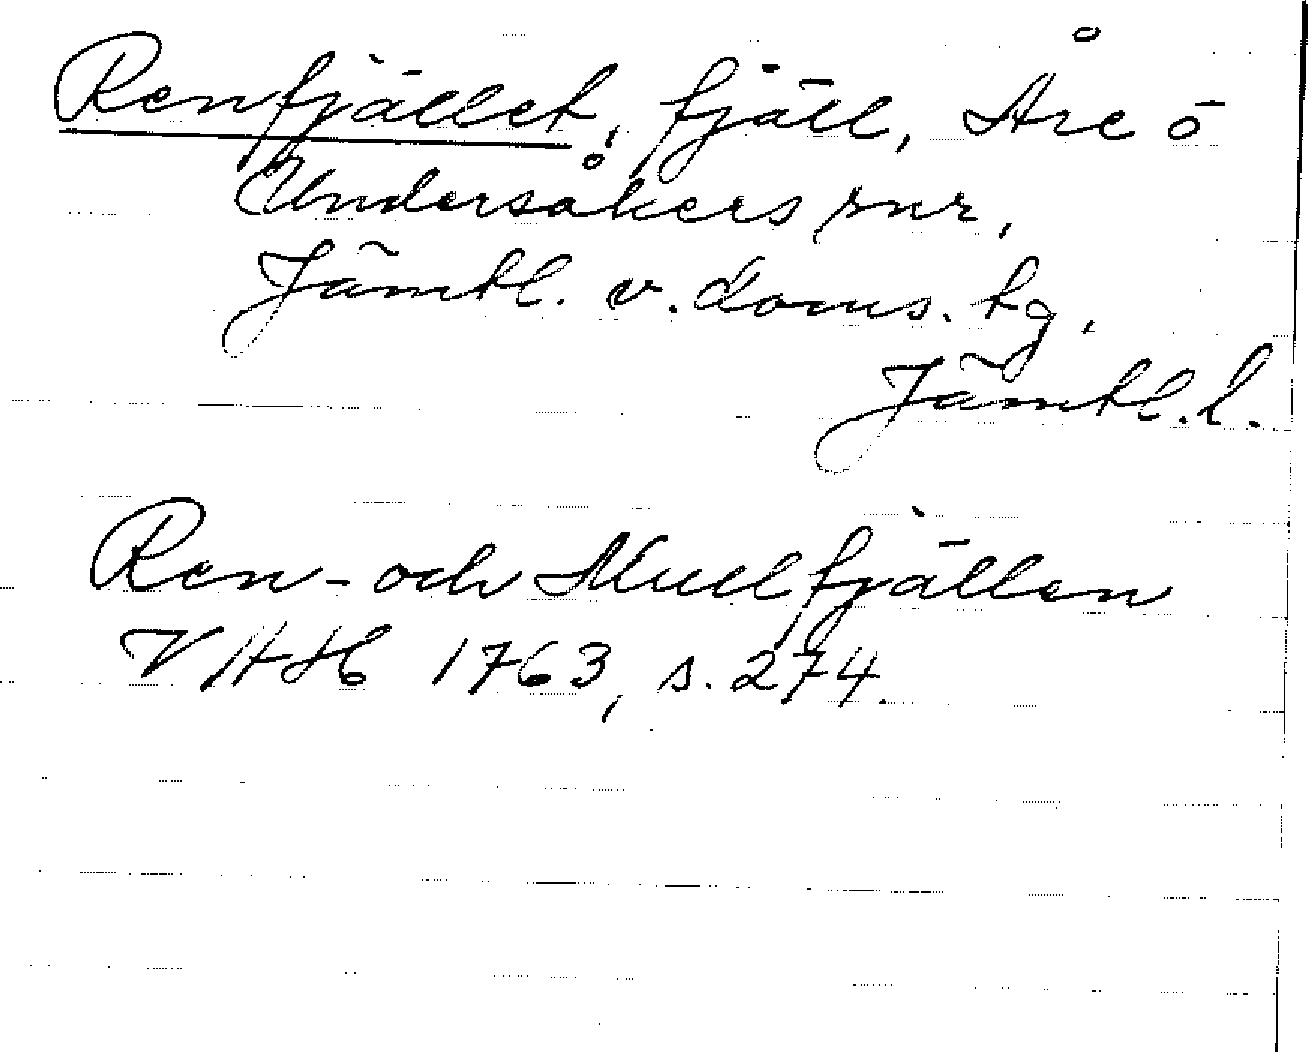 Renfjället, fjäll, Åre o
Undersåkers snr,
Jämtl. v. doms. tg,
Jämtl. l.
Ren- och Mullfjällen
VAH 1763, s. 274.